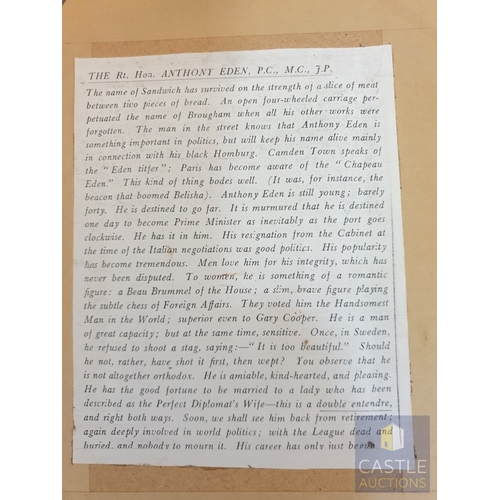 THE Rt. Hon. ANTHONY EDEN, P.C., M.C., J.P.
The name of Sandwich has survived on the strength of a slice of meat
between two pieces of bread. An open four-wheeled carriage per-
petuated the name of Brougham when all his other works were
forgotten. The man in the street knows that Anthony Eden is
something important in politics, but will keep his name alive mainly
in connection with his black Homburg. Camden Town speaks of
the "Eden titfer"; Paris has become aware of the "Chapeau
Eden." This kind of thing bodes well. (It was, for instance, the
beacon that boomed Belisha). Anthony Eden is still young; barely
forty. He is destined to go far. It is murmured that he is destined
one day to become Prime Minister as inevitably as the port goes
clockwise. He has it in him. His resignation from the Cabinet at
the time of the Italian negotiations was good politics. His popularity
has become tremendous. Men love him for his integrity, which has
never been disputed. To women, he is something of a romantic
figure: a Beau Brummel of the House; a slim, brave figure playing
the subtle chess of Foreign Affairs. They voted him the Handsomest
Man in the World; superior even to Gary Cooper. He is a man
of great capacity; but at the same time, sensitive. Once, in Sweden,
he refused to shoot a stag, saying:—"It is too beautiful." Should
he not, rather, have shot it first, then wept? You observe that he
is not altogether orthodox. He is amiable, kind-hearted, and pleasing.
He has the good fortune to be married to a lady who has been
described as the Perfect Diplomat's Wife—this is a double entendre,
and right both ways. Soon, we shall see him back from retirement;
again deeply involved in world politics; with the League dead and
buried, and nobody to mourn it. His career has only just
CASTLE
AUCTIONS